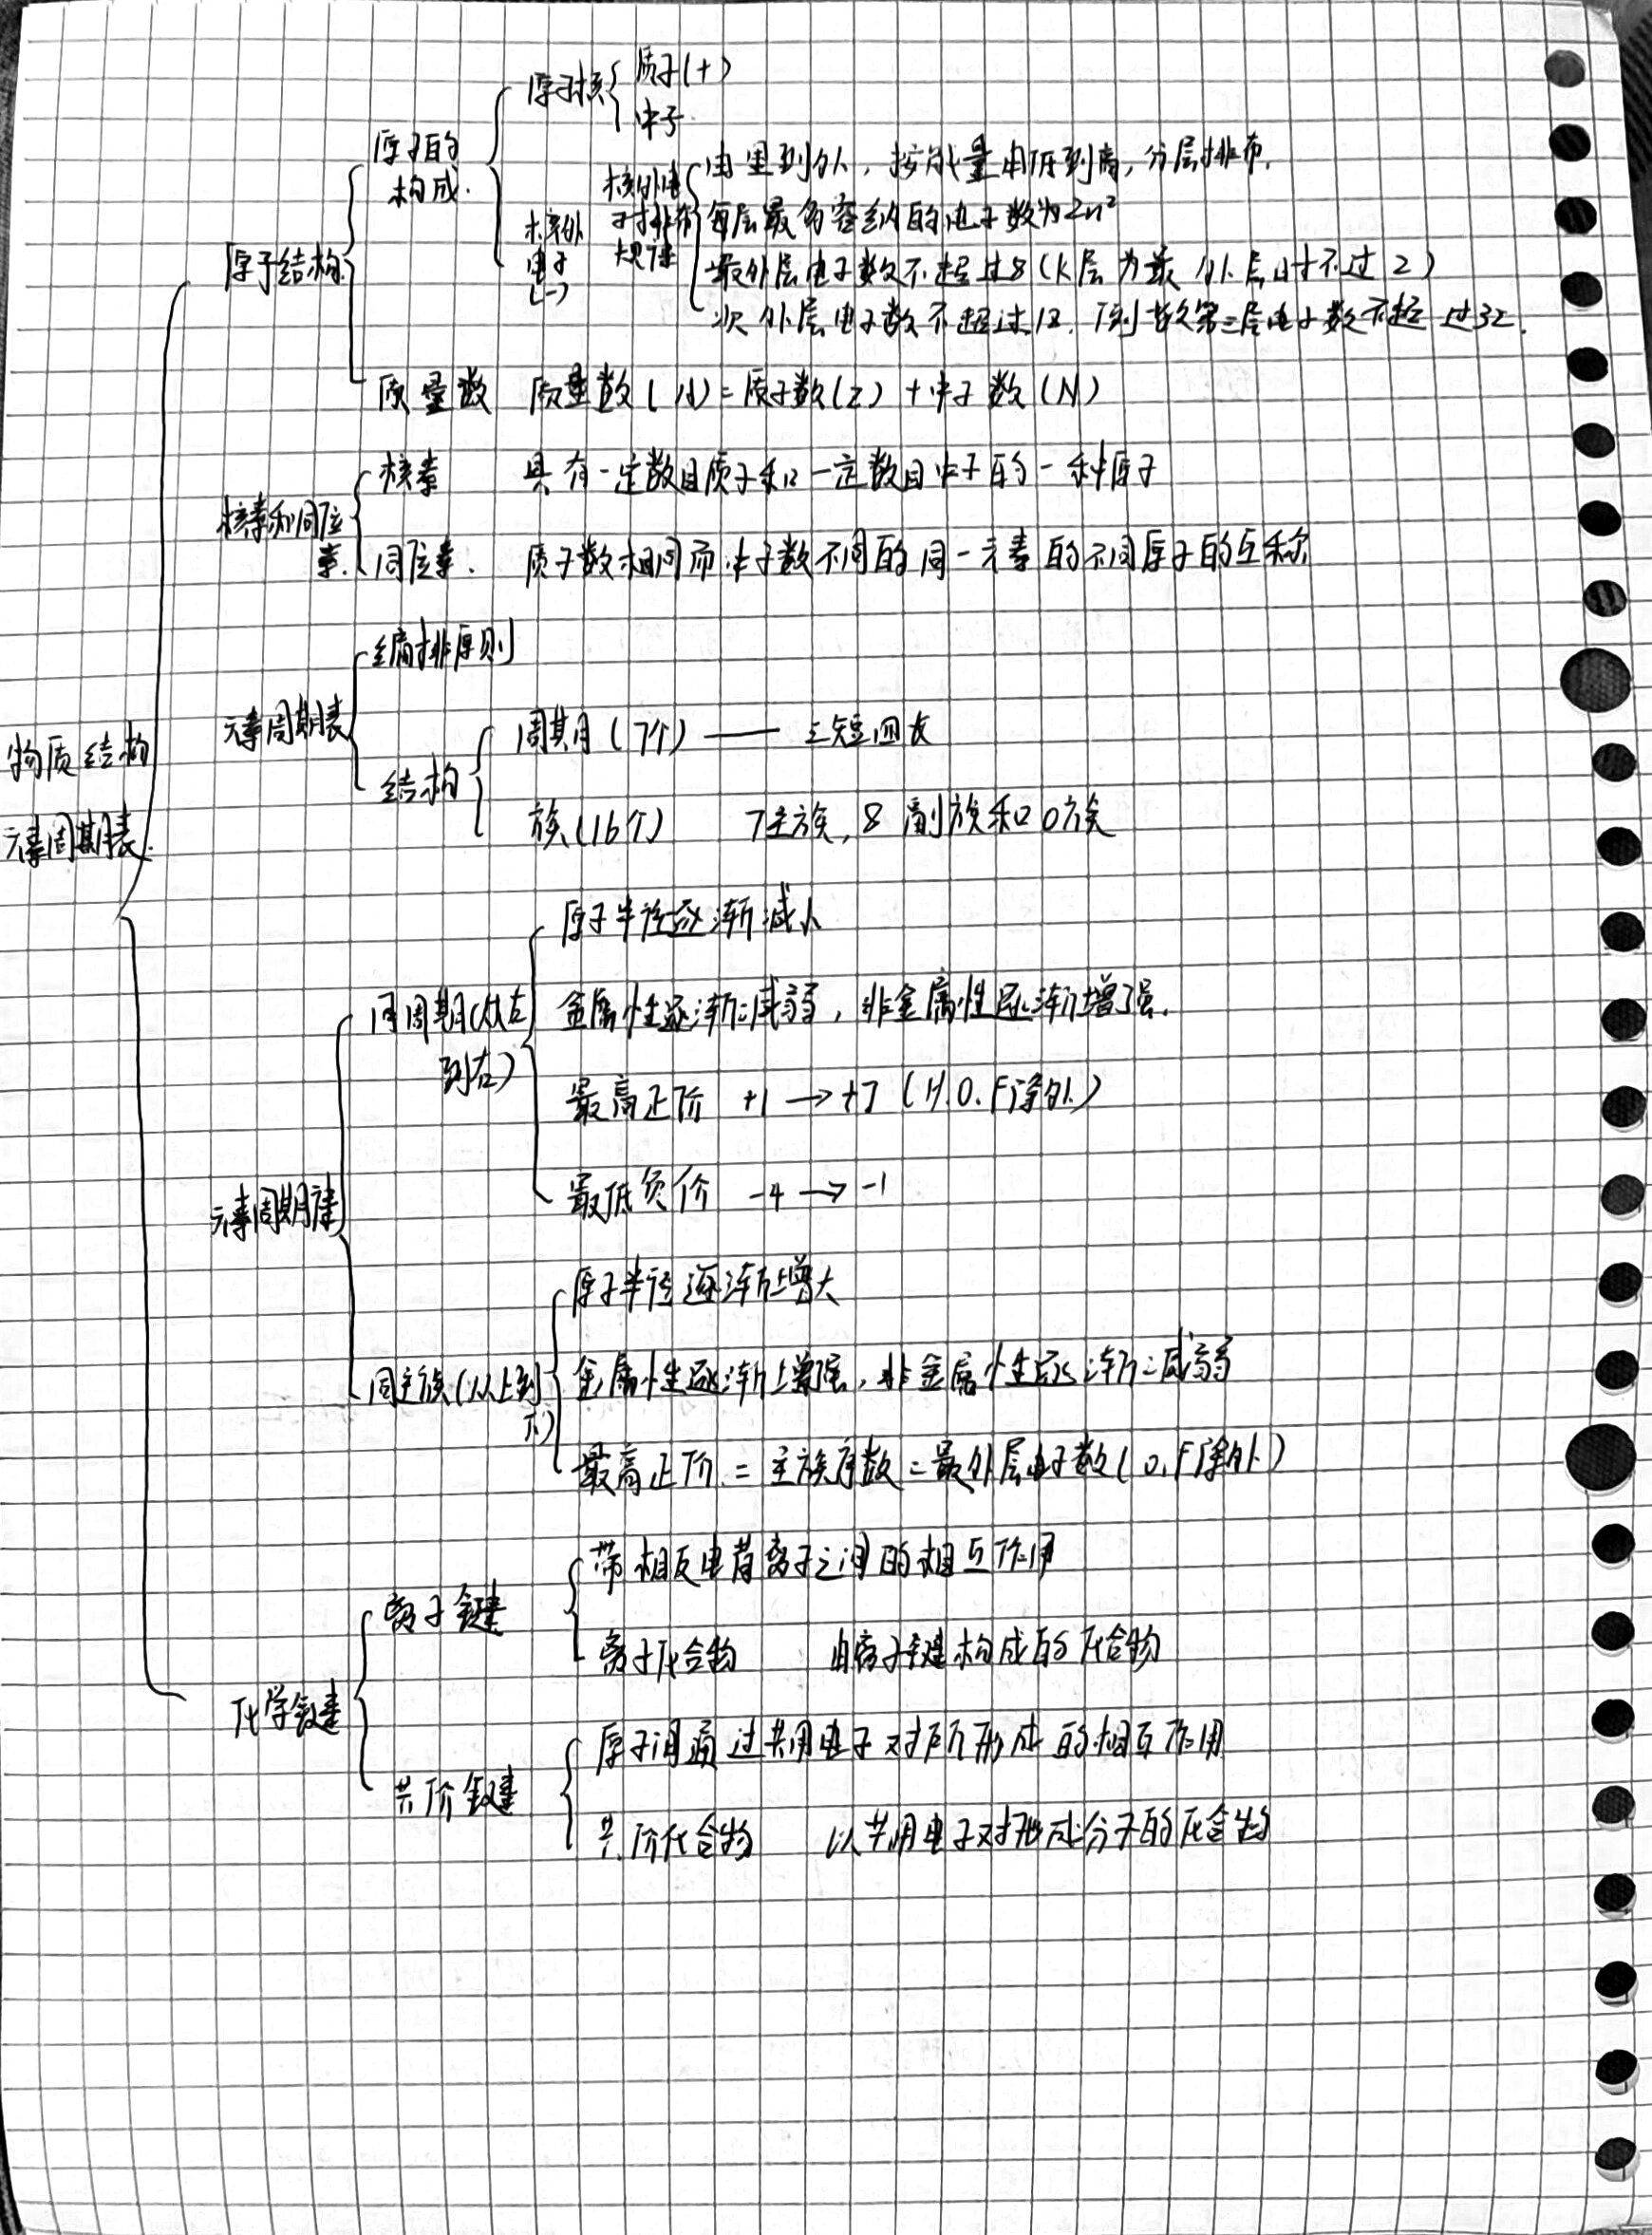 原子核
质子(+)
中子
原子的
构成.
核外
电子
(-)
核外电
子排布
规律
由里到外，按能量由低到高，分层排布.
每层最多容纳的电子数为2n²
最外层电子数不超过8(K层为最外层时不过2)
次外层电子数不超过18，倒数第三层电子数不超过32.
原子结构
质量数 质量数(A)=质子数(Z)+中子数(N)
核素 具有一定数目质子和一定数目中子的一种原子
核素和同位
素.
同位素. 质子数相同而中子数不同的同一元素的不同原子的互称
编排原则
元素周期表
周期(7个)——三短四长
结构
族(16个) 7主族,8副族和0族
物质结构
元素周期表.
原子半径逐渐减小
同周期(从左
到右)
金属性逐渐减弱,非金属性逐渐增强.
最高正价 +1→+7(H.O.F除外)
最低负价 -4→-1
元素周期律
原子半径逐渐增大
同主族(从上到
下)
金属性逐渐增强,非金属性逐渐减弱
最高正价=主族序数=最外层电子数(O,F除外)
离子键
带相反电荷离子之间的相互作用
离子化合物 由离子键构成的化合物
化学键
原子间通过共用电子对所形成的相互作用
共价键
共价化合物 以共用电子对形成分子的化合物